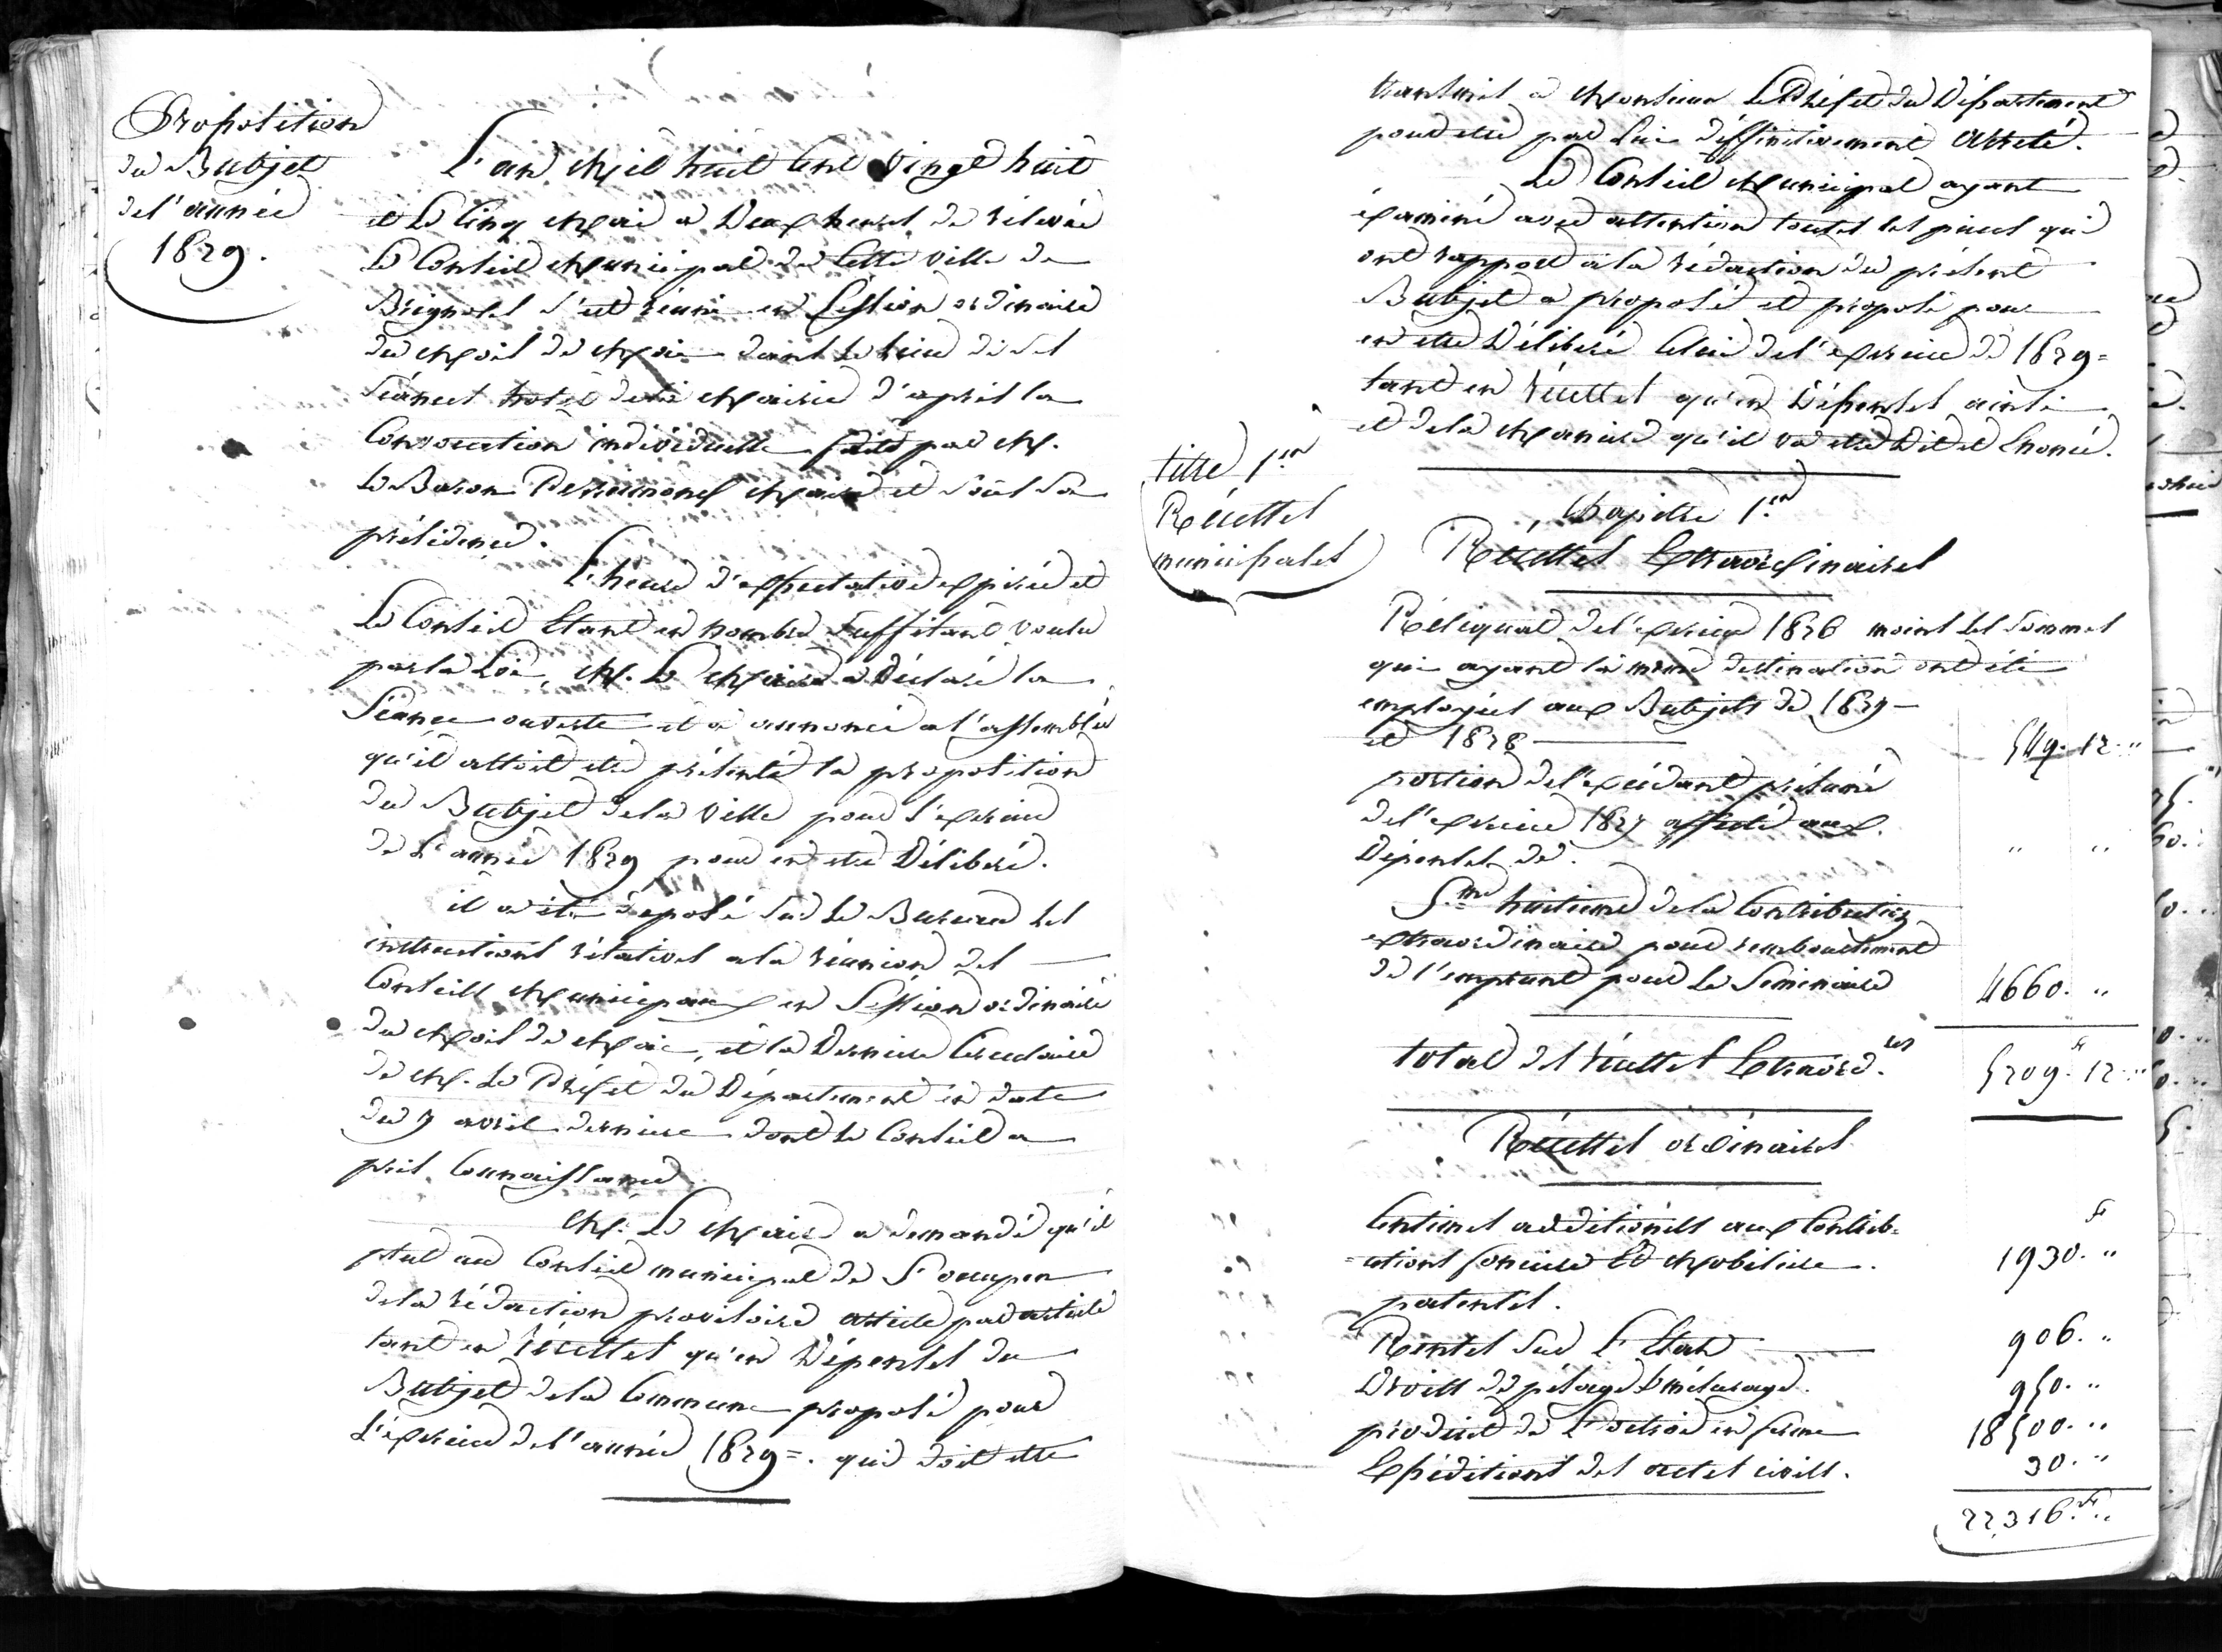 Proposition
du Butjet
de l'année
1829.
L'an Mil huit Cent vingt huit
et Le Cinq Mai à Deux heures de rélevée
Le Conseil Municipal de Cette ville de
Brignoles s'est réuni en Cession ordinaire
du Mois de Mai dans le lieu de ses
séances hotel de la Mairie d'après la
Convocation individuelle faite par M.
Le Baron Maire et sous sa
présidence.
L'heure d'expectative expirée et
Le Conseil Etant en nombre suffisant voulu
par la Loi, M. Le Maire a Déclaré la
Séance ouverte et a annoncé a l'assemblée
qu'il alloit etre présenté la proposition
du Butjet de la ville pour l'exercice
de L'année 1829 pour en etre Déliberé.
il a été déposé sur Le Bureau les
instructions rélatives a la réunion des
Conseils Municipaux en Session ordinaire
du Mois de Mai, et la Derniere Circulaire
de M. Le Préfet du Département en date
du 7 avril dernier dont le Conseil a
pris Connaissance.
M. Le Maire a demandé qu'il
plut au Conseil municipal de S'occuper
de la rédaction provisoire article par article
tant en récettes qu'en Dépenses du
Butjet de la Commune proposé pour
L'éxercice de l'année 1829 =. qui doit etre
transmis a Monsieur Le Préfet du Département
pour etre par Lui déffinitivement arreté.
Le Conseil Municipal ayant
éxaminé avec attention toutes les pieces qui
ont rapport à la rédaction du présent
Butjet a proposé et propose pour
en etre Déliberé Celui de l'exercice de 1829 =
tant en récettes qu'en Dépenses ainsi
et de la Maniere qu'il va etre Dit et Enoncé.
titre 1.er
Récettes
municipales
Chapitre 1.er
Récettes Extraordinaires
Réliquat de l'exercice 1826 moins les sommes
qui ayant la meme destination ont été
employées aux Butjets de 1827
et 1828 549. 12. "
portion de l'excédant présumé
de l'exercice 1827 affecté aux
Dépenses de. " "
5.me huitieme de la Contribution
extraordinaire pour remboursement
de l'emprunt pour Le Séminaire 4660. "
total des récettes Extraord.res 5209.fr 12. "
Récettes ordinaires
Centimes additionels aux Contrib=
=utions fonciere Et Mobiliere. 1930.fr "
patentes.
Rentes sur L'Etat 906. "
Droits de pésage & mésurage. 950. "
produit de L'octroi en ferme 18500. "
Expéditions des actes civils. 30. "
22,316.fr "